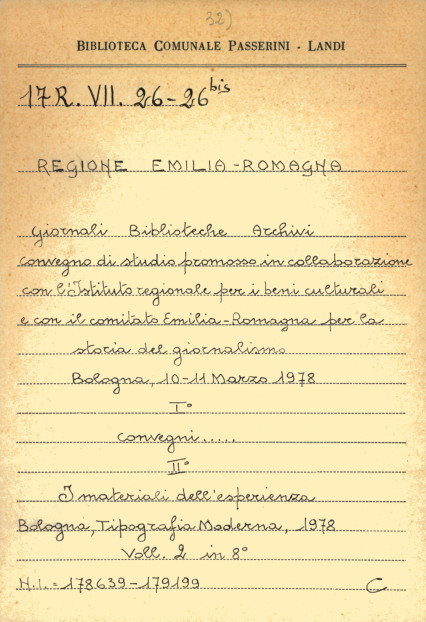 32)
BIBLIOTECA COMUNALE PASSERINI - LANDI
17 R. VII. 26-26 bis
REGIONE EMILIA-ROMAGNA
Giornali Biblioteche Archivi
convegno di studio promosso in collaborazione
con l'Istituto regionale per i beni culturali
e con il comitato Emilia-Romagna per la
storia del giornalismo
Bologna, 10-11 Marzo 1978
I°
convegni.....
II°
I materiali dell'esperienza
Bologna, Tipografia Moderna, 1978
Voll. 2 in 8°
N.I. = 178639-179199 C